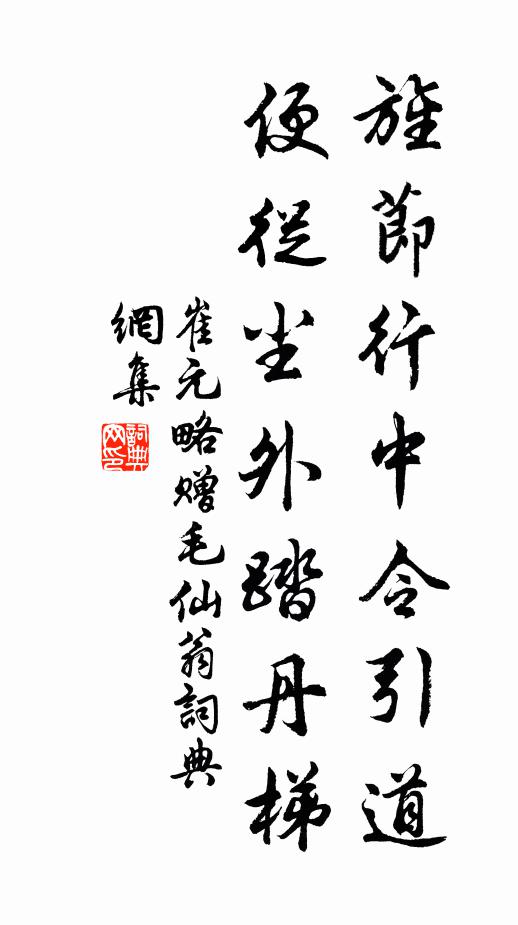 旌節行中令引道
便從塵外踏丹梯
崔元略贈毛仙翁詞典
網集
詞典網印